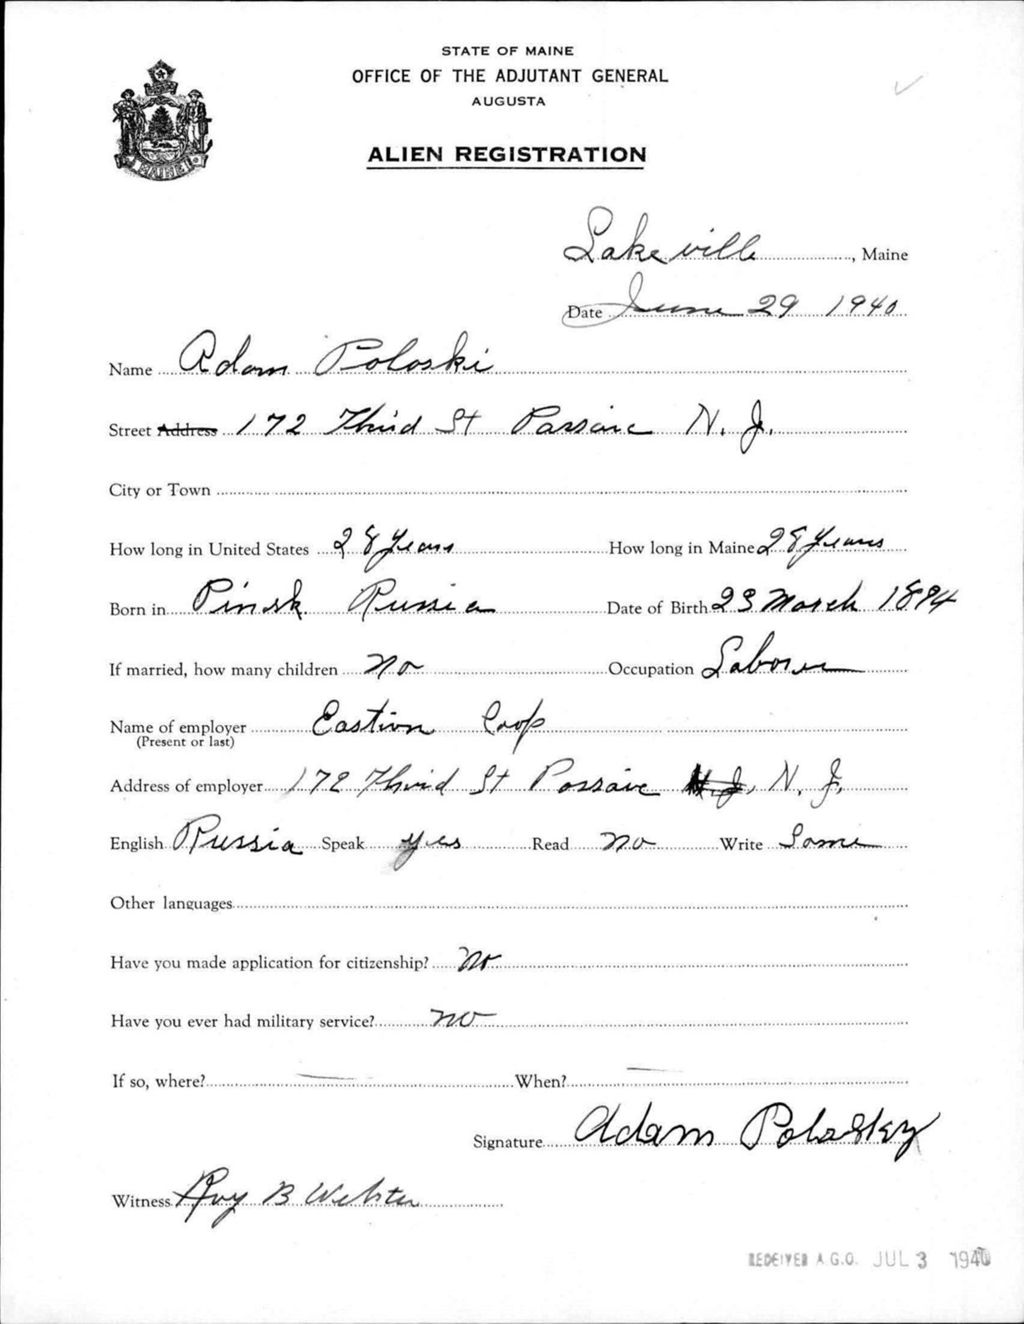 STATE OF MAINE
OFFICE OF THE ADJUTANT GENERAL
AUGUSTA
ALIEN REGISTRATION
MAINE
Lakeville, Maine
Date June 29 1940
Name Adam Poloski
Street Address 172 Third St Passaic N. J.
City or Town
How long in United States 28 Years How long in Maine 28 Years
Born in Pinsk Russia Date of Birth 23 March 1894
If married, how many children No Occupation Laborer
Name of employer Eastion Coop
(Present or last)
Address of employer 172 Third St Possaic N. J.
English Russia Speak yes Read no Write Some
Other languages
Have you made application for citizenship? No
Have you ever had military service? no
If so, where? — When? —
Signature Adam Polasky
Witness Roy B Webster
RECEIVED A.G.O. JUL 3 1940